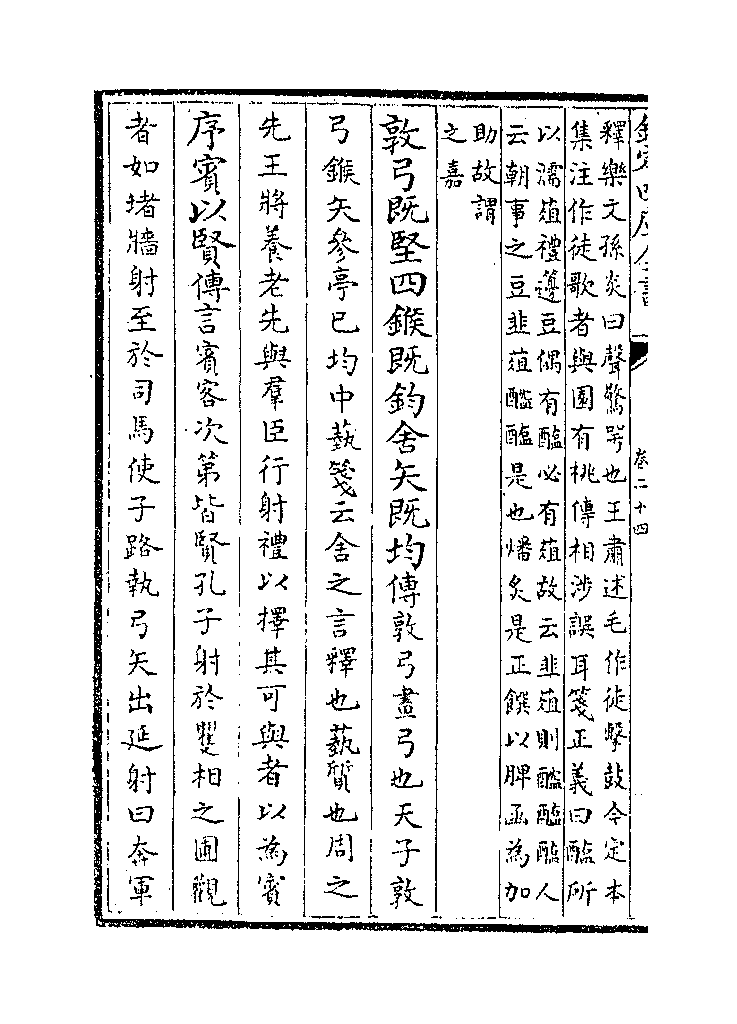 欽定四庫全書
卷二十四
釋樂文孫炎曰聲驚咢也王肅述毛作徒擊鼓今定本
集注作徒歌者與園有桃傳相涉誤耳箋正義曰醢所
以濡菹禮籩豆偶有醢必有菹故云韭菹則醓醢醢人
云朝事之豆韭菹醓醢是也燔炙是正饌以脾函為加
助故謂
之嘉
敦弓既堅四鍭既鈞舍矢既均傳敦弓畫弓也天子敦
弓鍭矢參亭已均中蓺箋云舍之言釋也蓺質也周之
先王將養老先與羣臣行射禮以擇其可與者以為賓
序賓以賢傳言賓客次第皆賢孔子射於矍相之圃觀
者如堵牆射至於司馬使子路執弓矢出延射曰奔軍